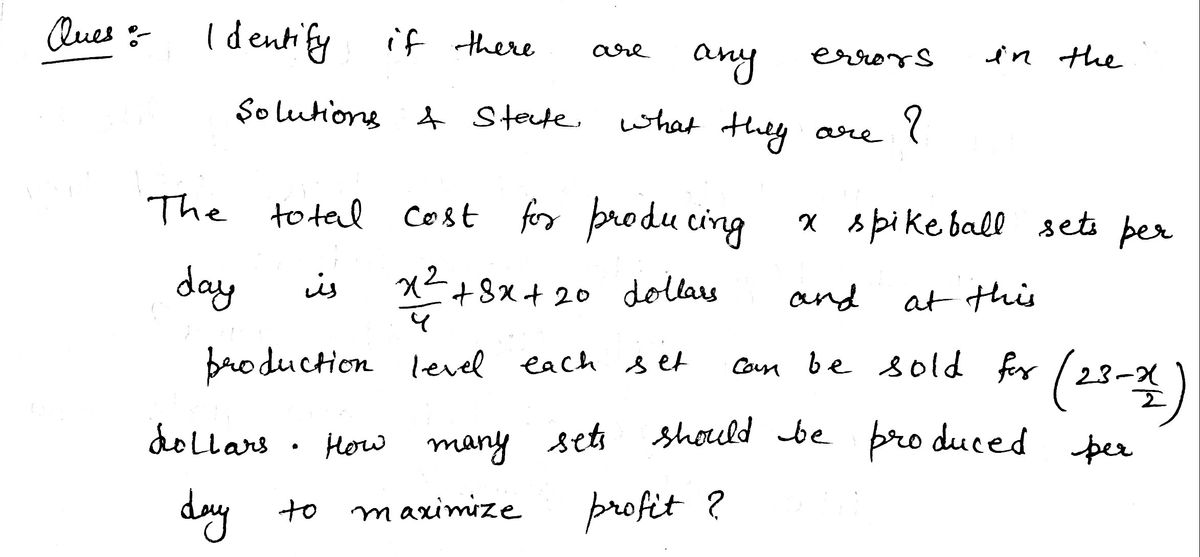 Ques :- Identify if there are any errors in the
Solutions & State what they are ?
The total cost for producing x spikeball sets per
day is x²/4 + 8x + 20 dollars and at this
production level each set can be sold for (23 - x/2)
dollars . How many sets should be produced per
day to maximize profit ?